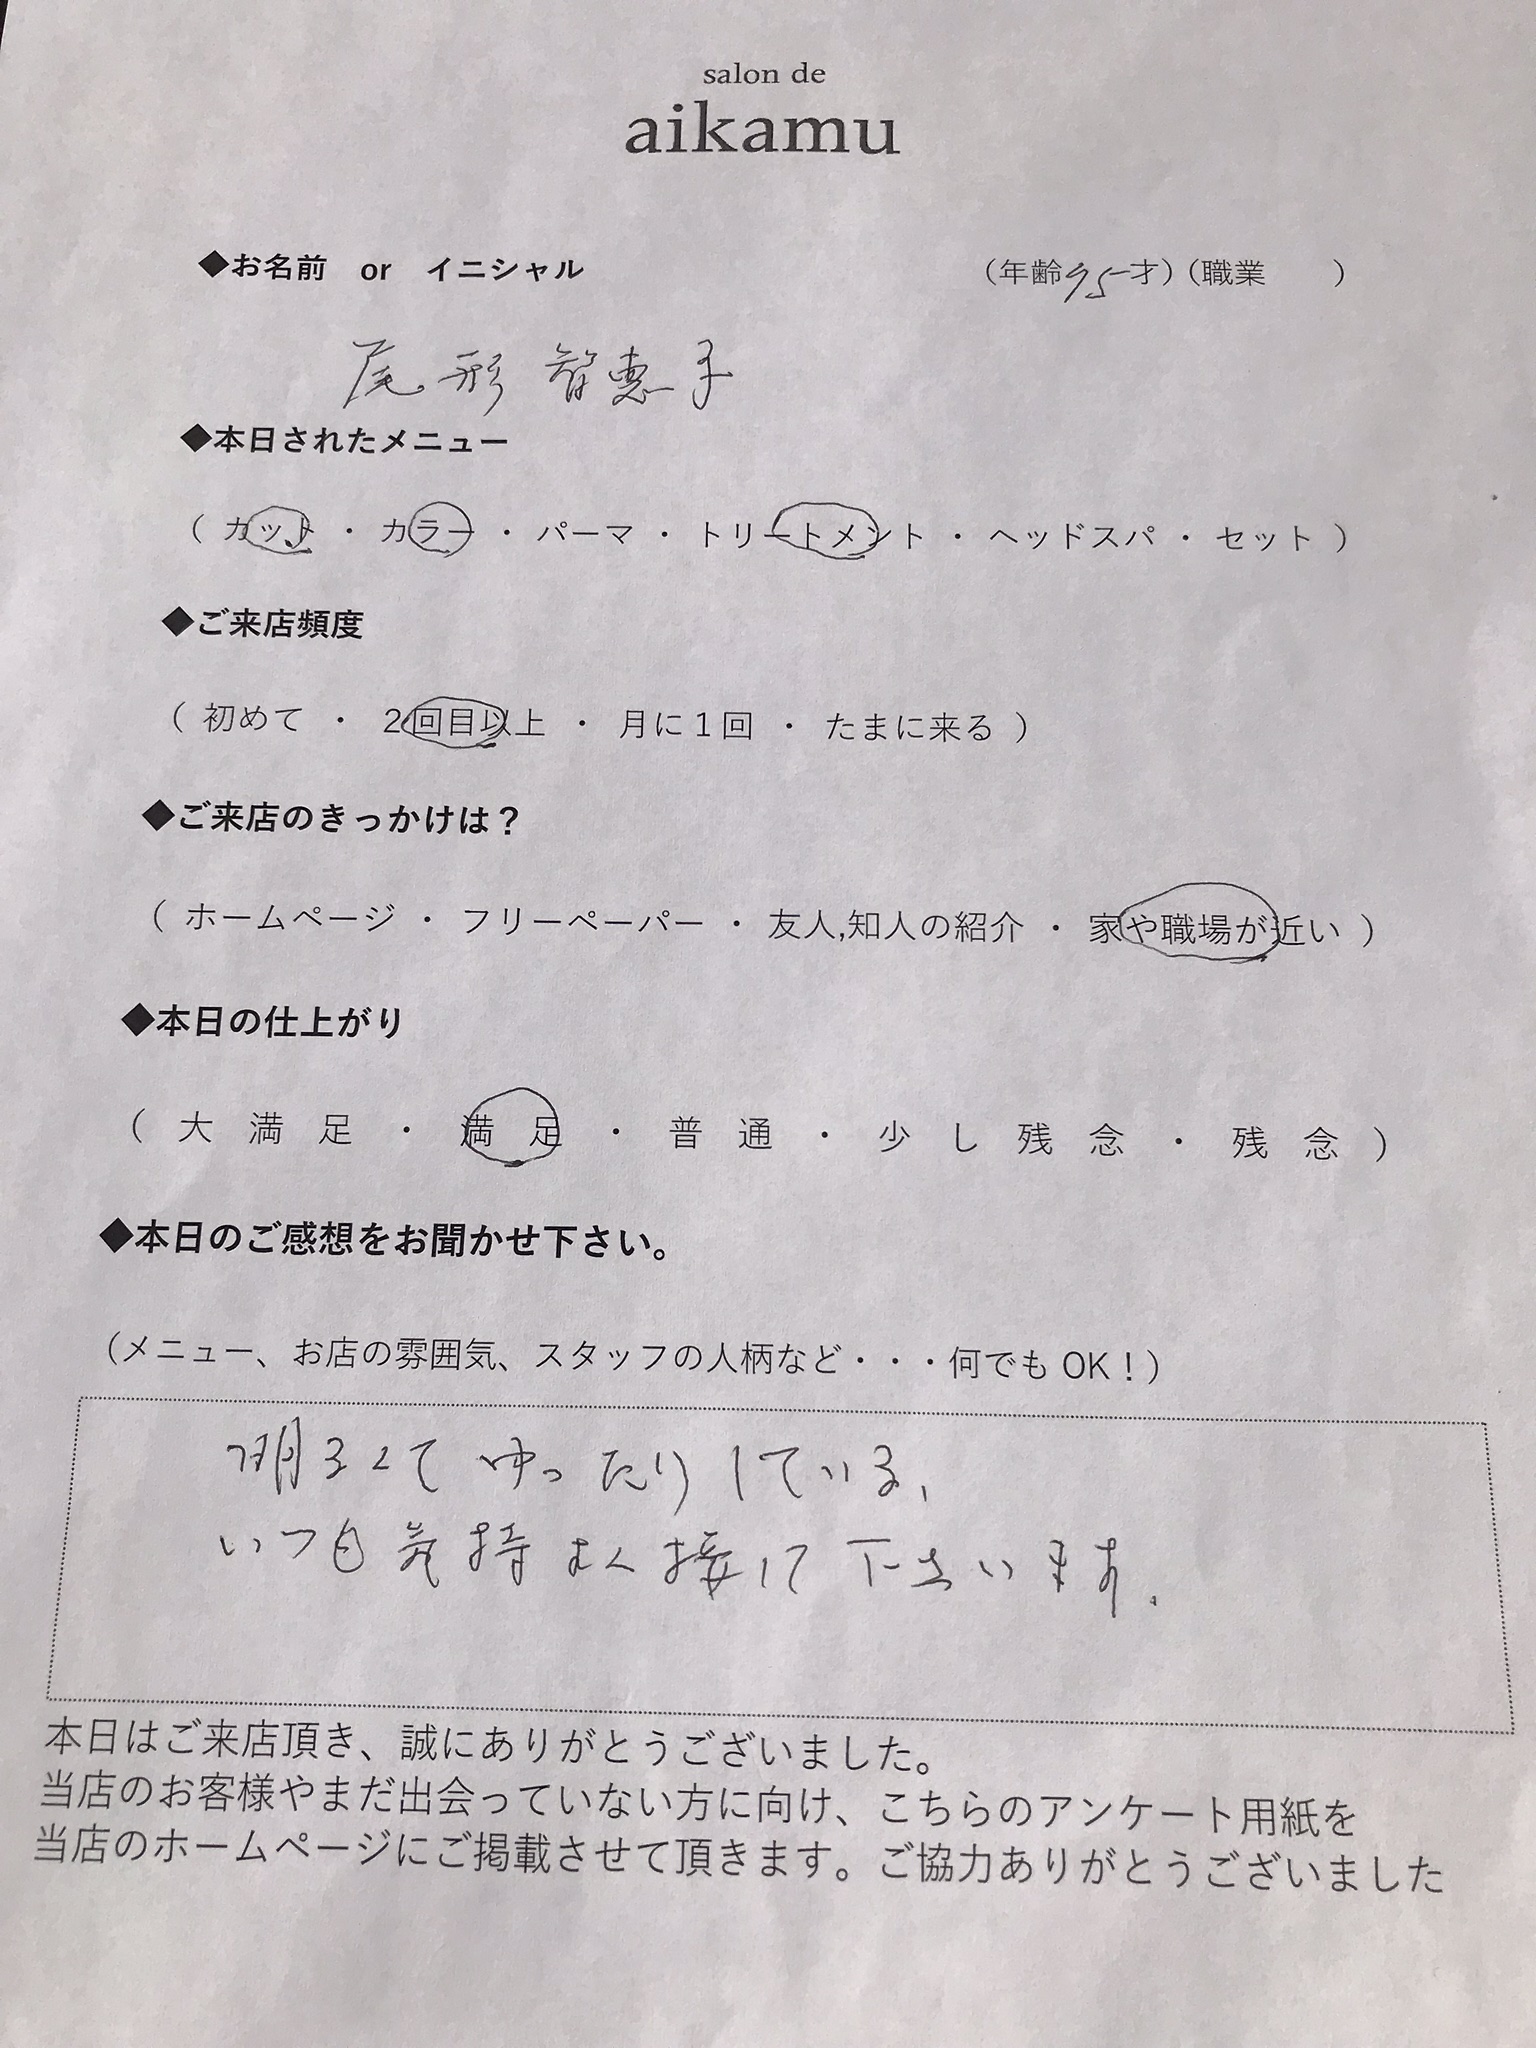 salon de
aikamu
◆お名前 or イニシャル （年齢75才）（職業 ）
尾形 智恵子
◆本日されたメニュー
（ カット ・ カラー ・ パーマ ・ トリートメント ・ ヘッドスパ ・ セット ）
◆ご来店頻度
（ 初めて ・ 2回目以上 ・ 月に1回 ・ たまに来る ）
◆ご来店のきっかけは？
（ ホームページ ・ フリーペーパー ・ 友人,知人の紹介 ・ 家や職場が近い ）
◆本日の仕上がり
（ 大 満 足 ・ 満 足 ・ 普 通 ・ 少 し 残 念 ・ 残 念 ）
◆本日のご感想をお聞かせ下さい。
（メニュー、お店の雰囲気、スタッフの人柄など・・・何でも OK！）
明るくて ゆったりしている、
いつも気持よく接して下さいます.
本日はご来店頂き、誠にありがとうございました。
当店のお客様やまだ出会っていない方に向け、こちらのアンケート用紙を
当店のホームページにご掲載させて頂きます。ご協力ありがとうございました